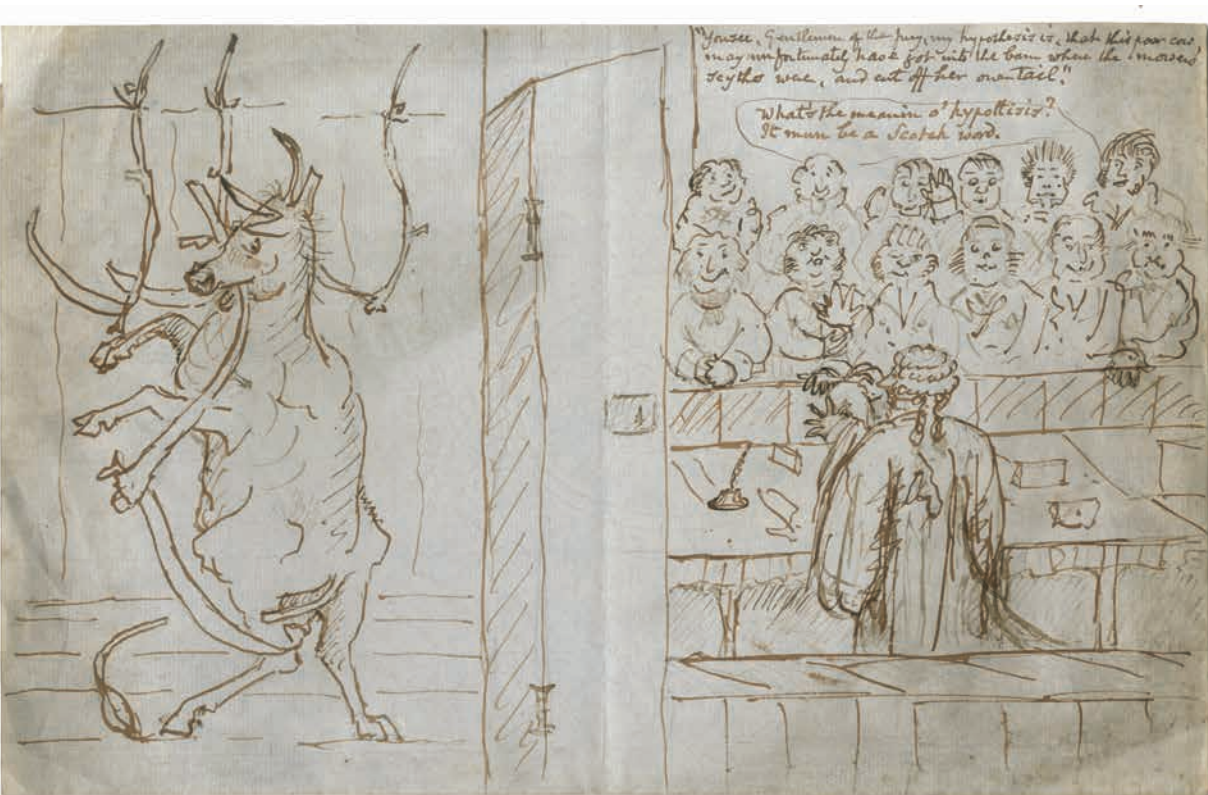 "You see, Gentlemen of the jury, my hypothesis is, that this poor cow
may unfortunately have got into the barn where the mowers'
scythes were, and cut off her own tail."
What's the meanin o' hypottisis?
It mun be a Scotch word.